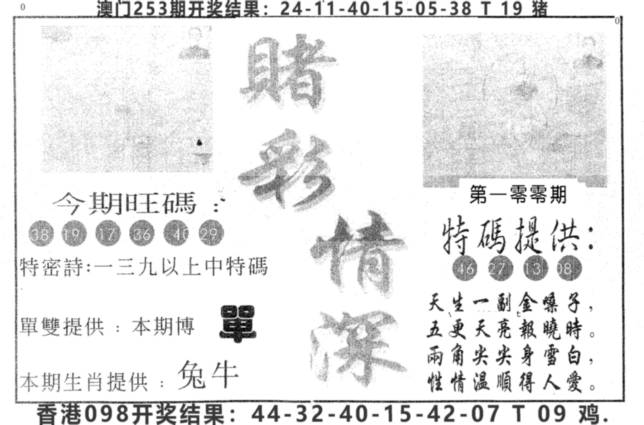 澳门253期开奖结果：24-11-40-15-05-38 T 19 猪
賭彩情深
今期旺碼：
38 19 17 36 40 29
特密詩:一三九以上中特碼
單雙提供：本期博 單
本期生肖提供：兔牛
第一零零期
特碼提供：
46 27 13 08
天生一副金嗓子，
五更天亮報曉時。
兩角尖尖身雪白，
性情溫順得人愛。
香港098开奖结果：44-32-40-15-42-07 T 09 鸡.